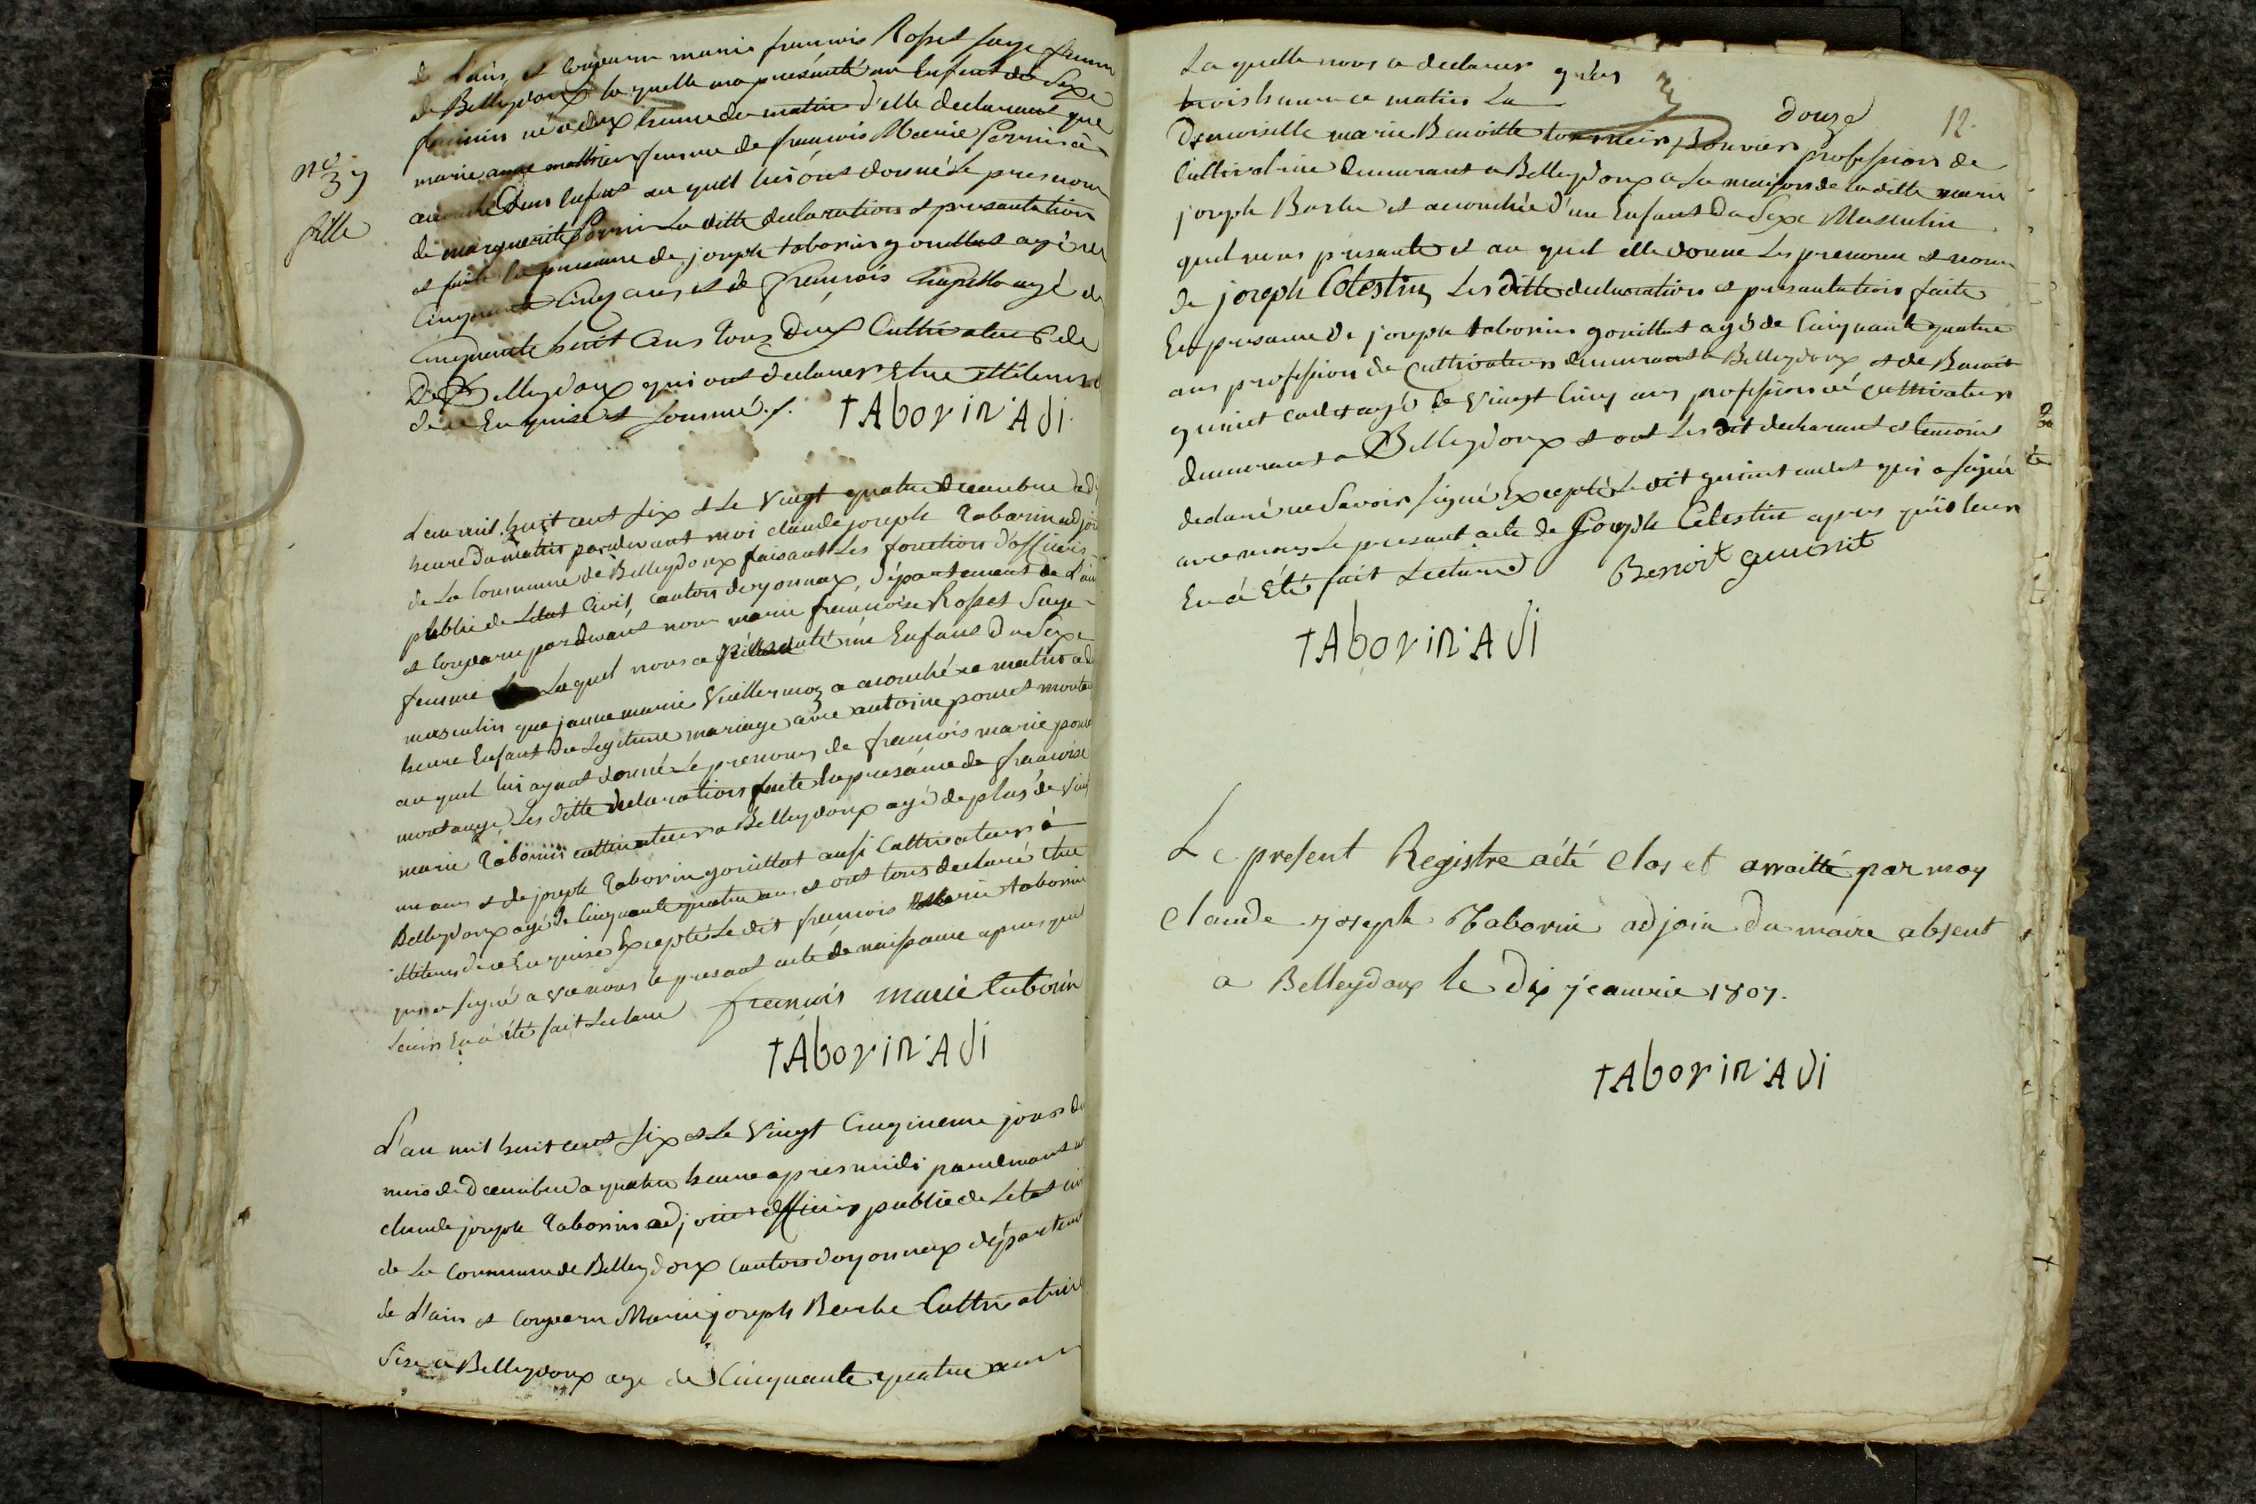 de Lain, et Comparu marie francois Rosset sage femme
de Belleydoux la quelle ma présanté un Enfant de Sexe
feminin né a deux heure du matin d'elle declarant que
marie anne mathieu femme de francois Marie Pernin à
acouché d'un Enfant au quel lui ont donné Le prenom
de marguerite Pernin La ditte declaration et presantation
et faite En presance de joseph taborin gouillat agé de
Cinquante Cinq ans, et de francois Chapelle agé de
Cinquante huit ans tous deux Cultivateurs de
De Belleydoux qui ont declarer Etre illiterrés
de ce Enquise et sommé ./. TAborin Adj.
no
37
fille
L'an mil huit cent six et Le vingt quatre decembre a d
heure du matin pardevant moi claude joseph Taborin adjoi
de La Commune de Belleydoux faisant Les fonction d'officier
publie de Letat Civil, Canton doyonnax, département de Lain
et Comparu pardevant nous marie francoise Rosset Sage
femme Laquel nous a présanté un Enfans du Sexe
masculin que janne marie Vuillermoz a acouché ce matin a d
heure Enfant du Legitime mariage avec antoine poncet monta
au quel lui ayant donné Le prenom de francois marie ponce
montange, Les ditte declaration faite En presance de francoise
marie Taborin cultivateur a Belleydoux agé de plus de vint
un ans et de joseph Taborin gouillat ausi Cultivateur à
Belleydoux agé de Cinquante quatre ans et ont tous declaré Etre
illiterés de ce Enquise Excepté Le dit francois Marie taborin
qui a signé avec nous le presant acte de naissance apres que
Leurs En a été fait Lecture francois marie taborin
TAborin Adj
L'an mil huit cent six et Le vingt Cinquieme jour du
mois de decembre a quatre heure apres midi pardevant m
claude joseph Taborin adjoint officier publie de Letat civi
de La Commune de Belleydoux Canton doyonnax département
de Lain et Comparu Marie joseph Barbe Cultivatrice
Size a Belleydoux age de Cinquante quatre ans
La quelle nous a declarer qu'à
trois heure ce matin La
douze 12.
Demoiselle marie Benoitte tournier Bouvier profession de
Cultivatrice demurant a Belleydoux a La maison de la ditte marie
joseph Barbe et acouchée d'un Enfant Du Sexe Masculin
quel nous présante et au quel elle donne Les prenom et nom
de joseph Célestin, Les ditte declaration et presantation faite
En presance de joseph taborin gouillat agé de Cinquante quatre
ans profession de Cultivateurs demurant a Belleydoux et de Benoit
guinet cadet agé de vingt Cinq ans profession de cultivateur
demurant a Belleydoux et ont Les dit declarant et temoins
declaré ne Savoir signé Excepté Le dit guinet cadet qui a signé
avec nous Le presant acte de Joseph Célestin apres qu'il leur
En à Eté fait Lecture Benoit guinnit
TAborin Adj
Le present Registre aété clos et arraitté par moy
claude joseph Taborin adjoin du maire absent
a Belleydoux le dix jeanvie 1807.
TAborin Adj